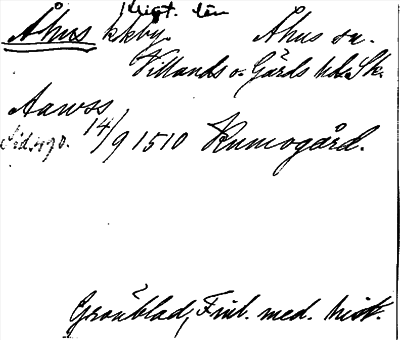 Krist. län
Åhus kkby. Åhus sn.
Villands o. Gärds hd. Sk.
Aawss,
Sid. 490. 14/9 1510 Rumogård.
Grönblad, Finl. med. hist.